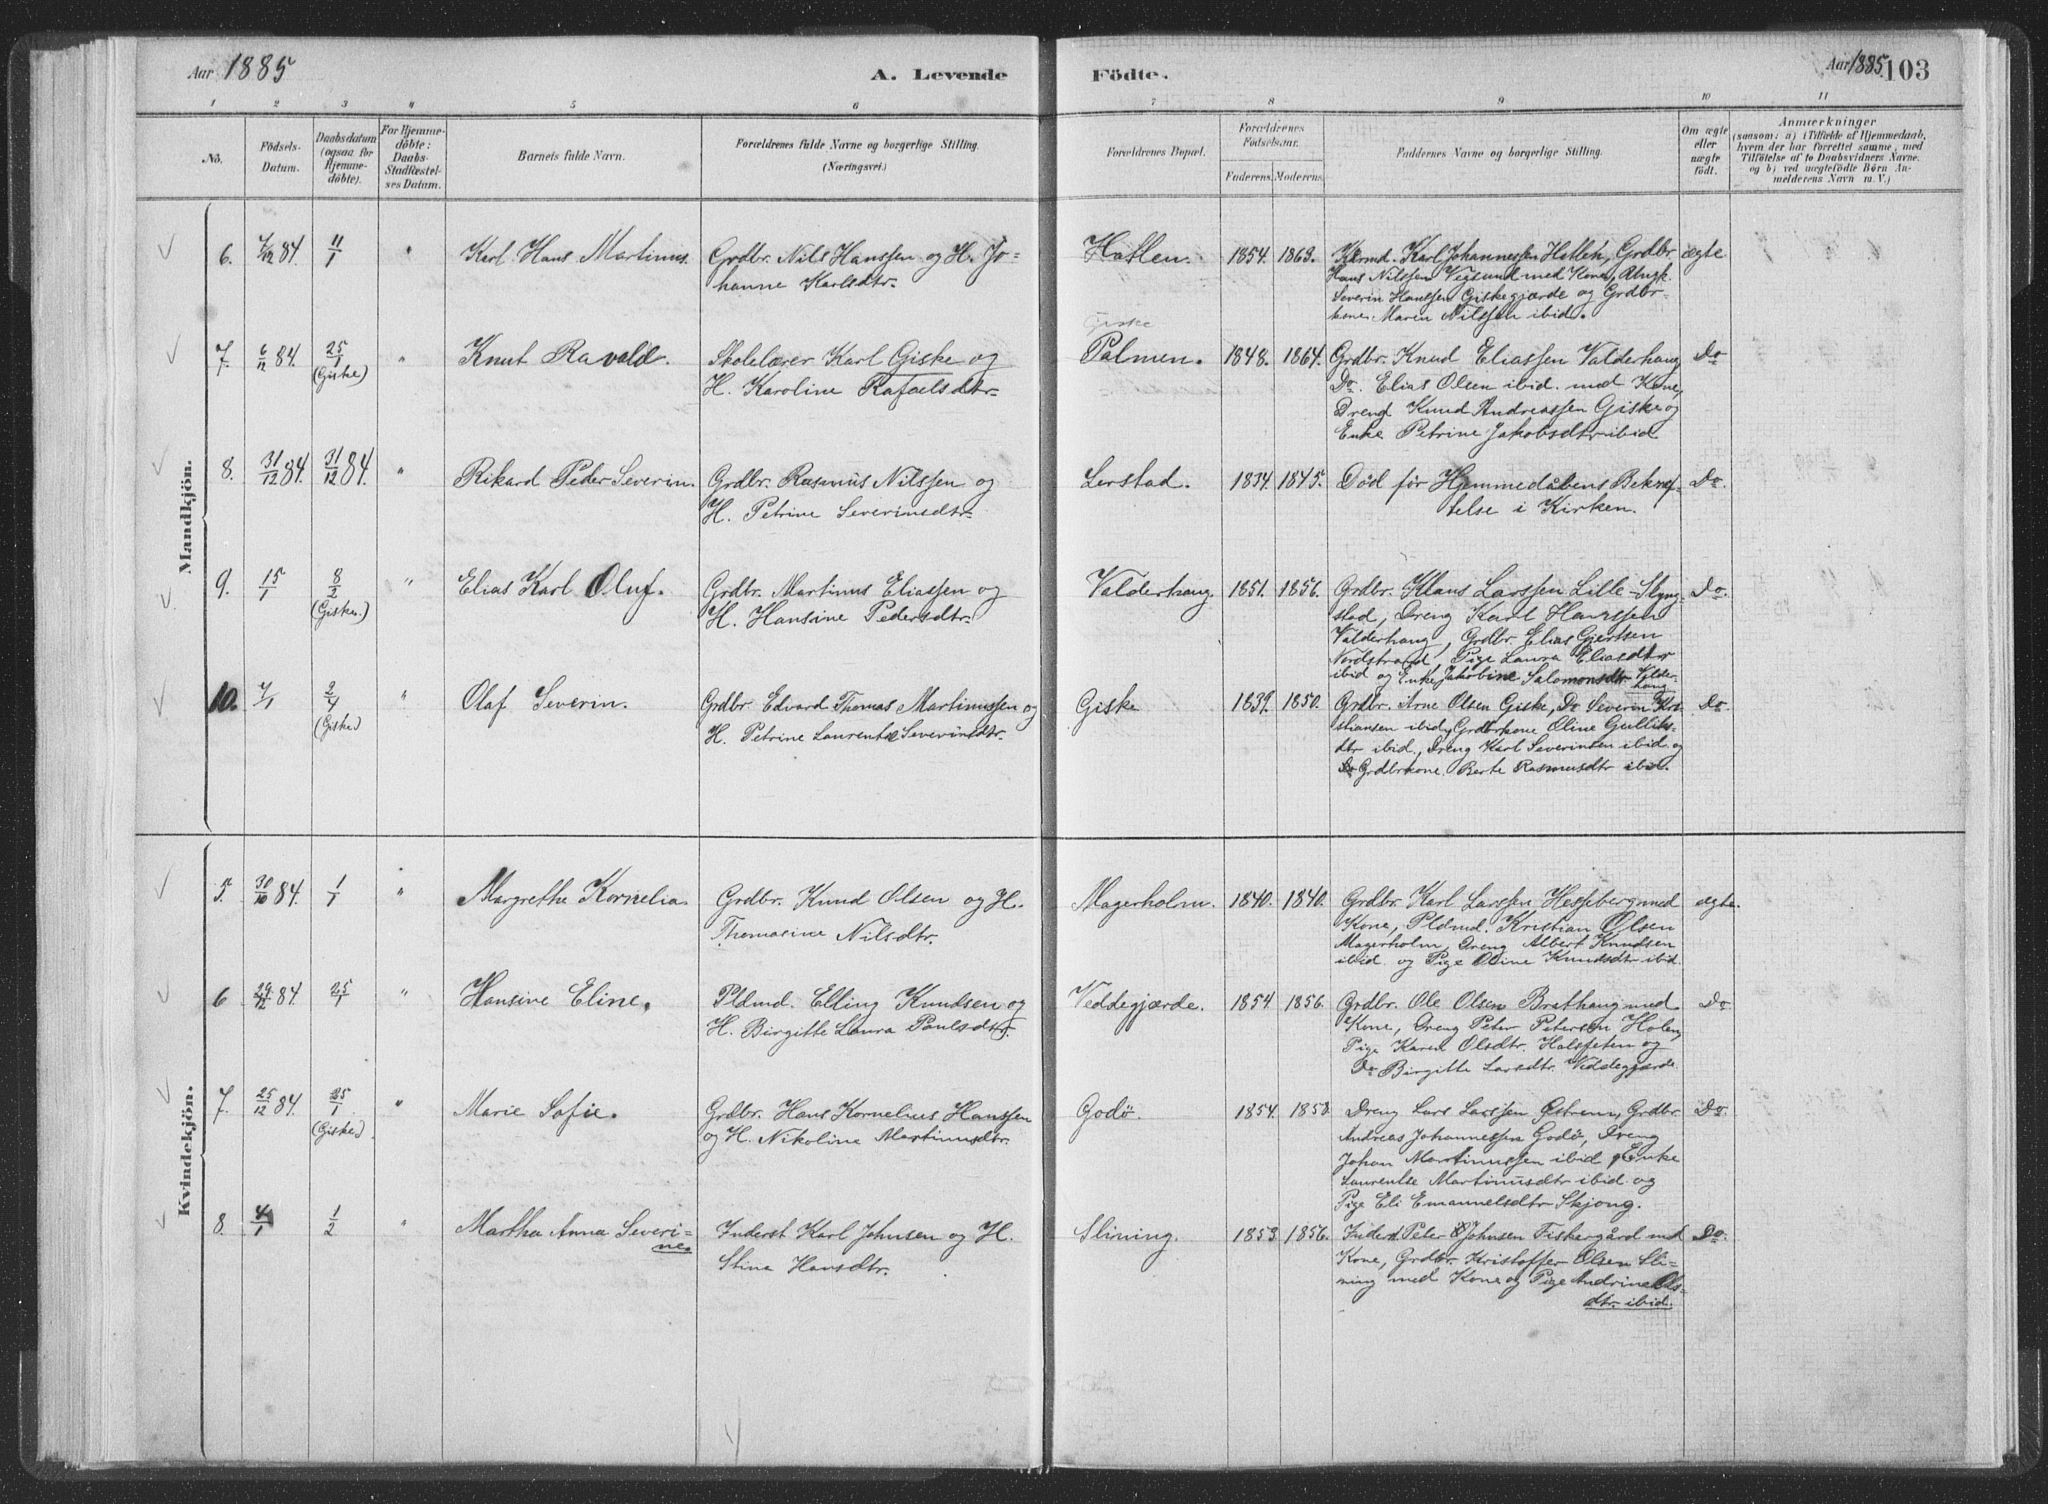 Aar 1885
A. Levende
Födte.
Aar 1885
103
1 2 3 4 5 6 7 8 9 10 11
No.
Födsels-
Datum.
Daabsdatum
(ogsaa for
Hjemme-
döbte).
For Hjemme-
döbte:
Daabs-
Stadfæstel-
ses Datum.
Barnets fulde Navn.
Forældrenes fulde Navne og borgerlige Stilling.
(Næringsvei.)
Forældrenes Bopæl.
Forældrenes
Födselsaar.
Faderens. Moderens.
Faddernes Navne og borgerlige Stilling.
Om ægte
eller
uægte
födt.
Anmærkninger
(saasom: a) i Tilfælde af Hjemmedaab,
hvem der har forrettet samme, med
Tilföielse af to Daabsvidners Navne.
og b) ved uægtefödte Börn An-
melderens Navn m. V.)
Mandkjön.
6. 7/12 84. 11/1 " Karl Hans Martinus. Grdbr. Nils Hanssen og H. Jo-
hanne Karlsdtr.
Hatlen. 1854. 1863. Karl Johannessen Hatleh, Grdbr. ægte
Hans Nilssen Vigsund med Kone,
Severin Hanssen Giskegjærde og Grdbr-
kone Maren Nilssen ibid.
7. 6/12 84. 25/1 (Giske) " Knut Ravald. Skolelærer Karl Giske og
H. Karoline Rafaelsdtr.
Giske
Palmen. 1848. 1864. Grdbr. Knud Eliassen Valderhaug Do
Do. Elias Olsen ibid. med Kone,
Dreng Knud Andreassen Giske og
Enke Petrine Jakobsdtr ibid
8. 31/12 84. 31/12 84. " Rikard Peder Severin. Grdbr. Rasmus Nilssen og
H. Petrine Severinsdtr.
Lerstad. 1834. 1845. Død før Hjemmedåbens Bekræf- Do.
telse i Kirken.
9. 15/1 8/2 (Giske.) " Elias Karl Oluf. Grdbr. Martinus Eliassen og
H. Hansine Pedersdtr.
Valderhaug. 1851. 1856. Grdbr. Klaus Larssen Lille-Blyng- Do.
stad, Dreng Karl Hanssen
Valderhaug, Grdbr. Elias Gjertsen
Nordstrand, Pige Laura Eliasdtr
ibid og Enke Jakobine Salomonsdtr. Valder-
haug
10. 7/1 2/4 (Giske) " Olaf Severin. Grdbr. Edvard Thomas Martinussen og
H. Petrine Laurentse Severinsdtr.
Giske 1839. 1850. Grdbr. Arne Olsen Giske, Do Severin Kri- Do.
stiansen ibid, Grdbrkone Oline Gulliks-
dtr ibid., Dreng Karl Severinsen ibid. og
Do Grdbrkone. Berte Rasmusdtr ibid.
Kvindekjön.
5. 30/10 84. 1/1 " Margrethe Kornelia. Grdbr. Knud Olsen og H.
Thomasine Nilsdtr.
Magerholm. 1840. 1840. Grdbr. Karl Larssen Hesseberg med ægte.
Kone, Pldmd. Kristian Olsen
Magerholm, Dreng Albert Knudsen
ibid. og Pige Oline Knudsdtr ibid.
6 29/12 84 25/1 " Hansine Eline. Pldmd. Elling Knudsen og
H. Birgitte Laura Paulsdtr.
Veddegjærde. 1854 1856. Grdbr. Ole Olsen Brathaug med Do
Kone, Dreng Peter Petersen Holen,
Pige Karen Olsdtr. Halsfeten og
Do Birgitte Larsdtr. Veddegjærde
7. 25/12 84. 25/1 (Giske) " Marie Sofie. Grdbr. Hans Kornelius Hanssen
og H. Nikoline Martinusdtr.
Godø. 1854. 1858. Dreng Lars Larssen Østrem, Grdbr. Do.
Andreas Johannessen Godø, Dreng
Johan Martinussen ibid, Enke
Laurentse Martinusdtr ibid. og
Pige Eli Emanuelsdtr Skjong.
8. 4/1 1/2 " Martha Anna Severi-
ne. Inderst Karl Johnsen og H.
Stina Hansdtr.
Slining. 1853 1856. Inderst Peter Johnsen Fiskergård med Do.
Kone, Grdbr. Kristoffer Olsen Sli-
ning med Kone og Pige Andrine Ols-
dtr. ibid.